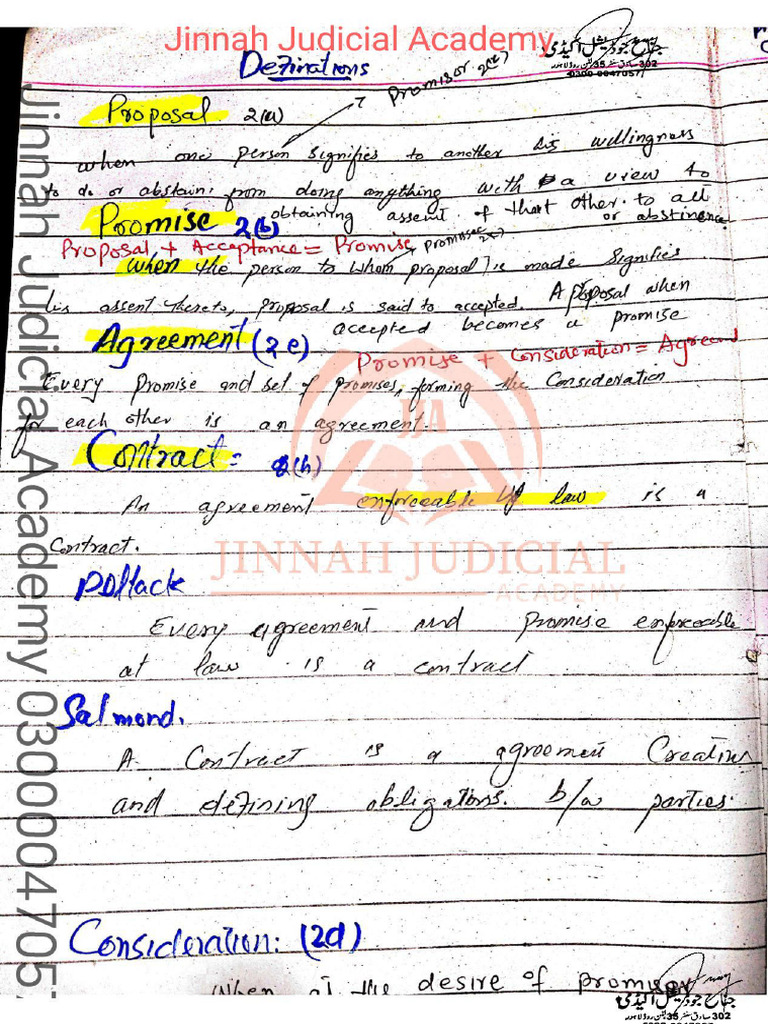 Jinnah Judicial Academy
جناح جوڈیشل اکیڈمی
Definations
Promisor 2(c)
Proposal 2(a)
when one person signifies to another his willingness
to do or abstain from doing anything with a view to
obtaining assent of that other to
or abstinence
Promise 2(b)
Proposal + Acceptance = Promise
Promisee 2(c)
when the person to whom proposal is made signifies
his assent thereto, proposal is said to accepted. A proposal when
accepted becomes a promise
Agreement (2e)
Promise + Consideration =
Every Promise and set of promises, forming the Consideration
for each other is an agreement.
Contract = 2(h)
An agreement enforceable by law is a
Contract.
JJA
JINNAH JUDICIAL
ACADEMY
Pollack
Every agreement and promise enforceable
at law is a contract
Salmond.
A Contract is a agreement Creating
and defining obligations. b/w parties.
Consideration: (2d)
When at the desire of promisor
Jinnah Judicial Academy 0300004705
جناح جوڈیشل اکیڈمی